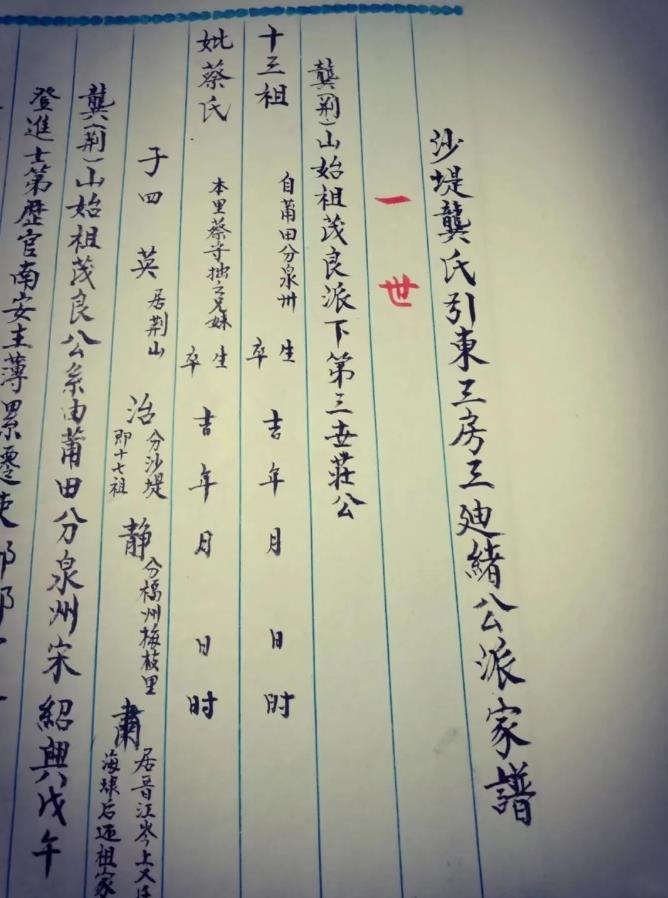 沙堤龔氏引東三房三廸緒公派家譜
一世
龔(荆)山始祖茂良派下第三世莊公
十三祖 自莆田分泉州 生卒 吉年月日时
妣蔡氏 本里蔡守拙之兄妹 生卒 吉年月日时
子四 英 居荆山 治 分沙堤即十七祖 静 分福州梅枝里 肅 居晋江岑上又
龔(荆)山始祖茂良公系由莆田分泉州宋紹興戊午
登進士第歷官南安主薄累遷吏部郎